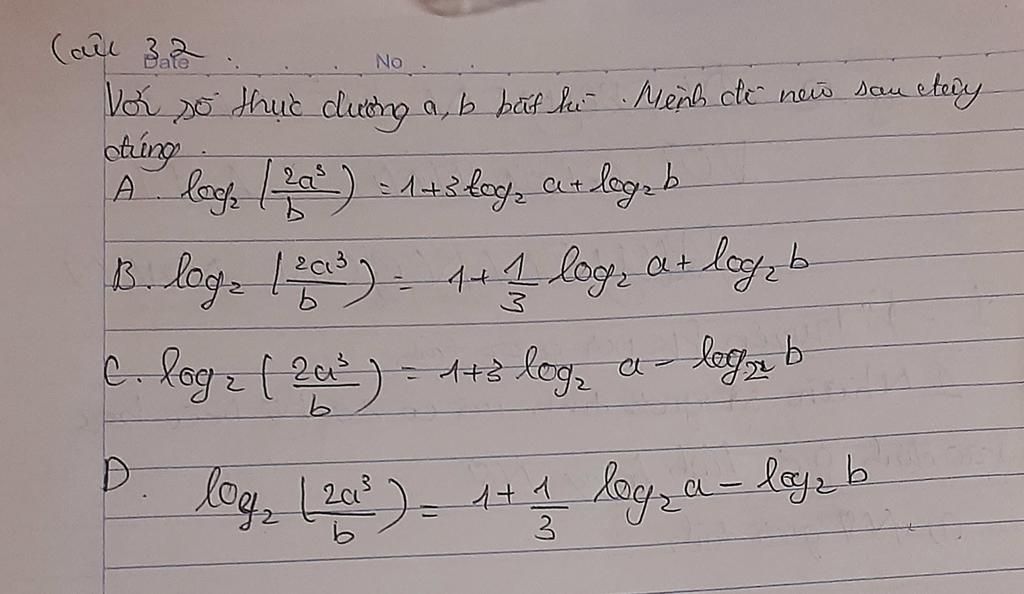 Câu 32
Date No
Với số thực dương a, b bất kì. Mệnh đề nào sau đây
đúng.
A. log₂ (2a³/b) = 1+3 log₂ a + log₂ b
B. log₂ (2a³/b) = 1 + 1/3 log₂ a + log₂ b
C. log₂ (2a³/b) = 1+3 log₂ a - log₂ b
D. log₂ (2a³/b) = 1 + 1/3 log₂ a - log₂ b